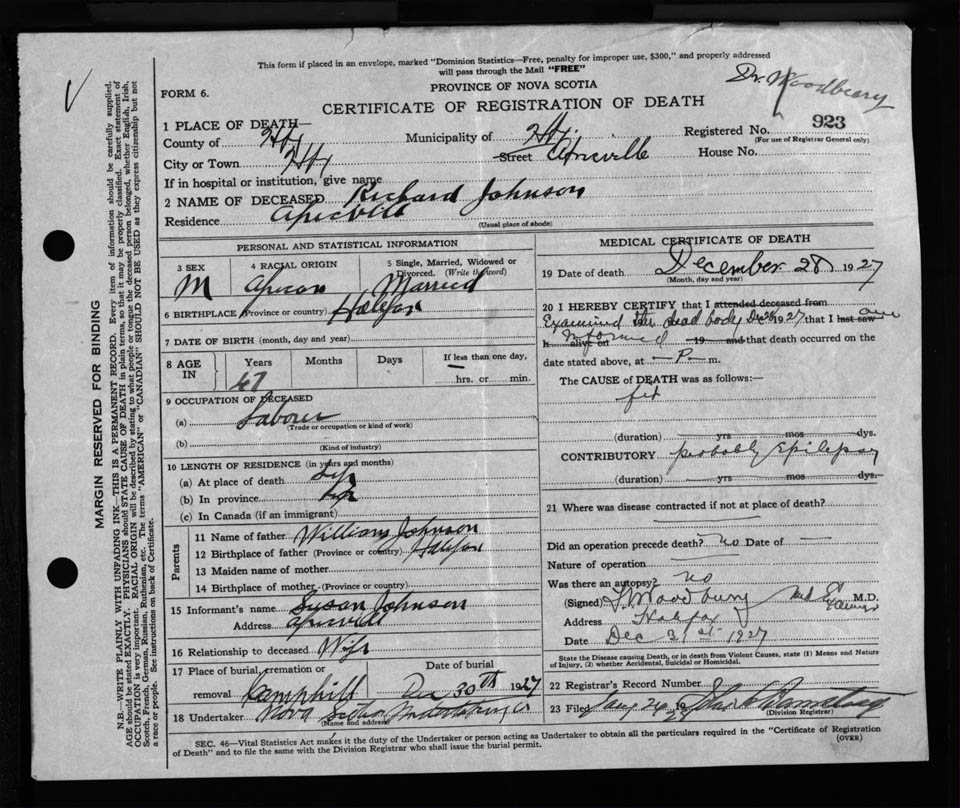 This form if placed in an envelope, marked "Dominion Statistics—Free, penalty for improper use, $300," and properly addressed
will pass through the Mail "FREE"
Dr. Woodbury
PROVINCE OF NOVA SCOTIA
FORM 6.
CERTIFICATE OF REGISTRATION OF DEATH
1 PLACE OF DEATH—
County of Hfx Municipality of Hfx Registered No. 923
(For use of Registrar General only)
City or Town Hfx Street Africville House No.
If in hospital or institution, give name
2 NAME OF DECEASED Richard Johnson
Residence Africville
(Usual place of abode)
PERSONAL AND STATISTICAL INFORMATION
3 SEX M
4 RACIAL ORIGIN African
5 Single, Married, Widowed or Divorced. (Write the word) Married
6 BIRTHPLACE (Province or country) Halifax
7 DATE OF BIRTH (month, day and year)
8 AGE IN Years 47 Months Days If less than one day, hrs. or min.
9 OCCUPATION OF DECEASED
(a) Laborer
(Trade or occupation or kind of work)
(b)
(Kind of industry)
10 LENGTH OF RESIDENCE (in years and months)
(a) At place of death life
(b) In province life
(c) In Canada (if an immigrant)
Parents
11 Name of father William Johnson
12 Birthplace of father (Province or country) Halifax
13 Maiden name of mother
14 Birthplace of mother (Province or country)
15 Informant's name Susan Johnson
Address Africville
16 Relationship to deceased Wife
17 Place of burial, cremation or removal Camphill
Date of burial Dec 30th 1927
18 Undertaker Nova Scotia Undertaking Co
(Name and address)
MEDICAL CERTIFICATE OF DEATH
19 Date of death December 28 1927
(Month, day and year)
20 I HEREBY CERTIFY that I attended deceased from
Examined the dead body Dec 28 1927 that I last saw am
h alive on informed 19 and that death occurred on the
date stated above, at —P— m.
The CAUSE of DEATH was as follows:—
fit
(duration) yrs mos dys.
CONTRIBUTORY probably Epilepsy
(duration) yrs mos dys.
21 Where was disease contracted if not at place of death?
Did an operation precede death? no Date of —
Nature of operation
Was there an autopsy? no
(Signed) Woodbury Med Ex M.D.
Address Halifax
Date Dec 31st 1927
State the Disease causing Death, or in death from Violent Causes, state (1) Means and Nature
of Injury, (2) whether Accidental, Suicidal or Homicidal.
22 Registrar's Record Number
23 Filed Jany 19
(Division Registrar)
SEC. 46—Vital Statistics Act makes it the duty of the Undertaker or person acting as Undertaker to obtain all the particulars required in the "Certificate of Registration
of Death" and to file the same with the Division Registrar who shall issue the burial permit.
(OVER)
MARGIN RESERVED FOR BINDING
N.B.—WRITE PLAINLY WITH UNFADING INK—THIS IS A PERMANENT RECORD. Every item of information should be carefully supplied.
AGE should be stated EXACTLY. PHYSICIANS should STATE CAUSE OF DEATH in plain terms, so that it may be properly classified. Exact statement of
OCCUPATION is very important. RACIAL ORIGIN will be described by stating to what people or tongue the deceased person belonged, whether English, Irish,
Scotch, French, German, Russian, Ruthenian, etc. The terms "AMERICAN" or "CANADIAN" SHOULD NOT BE USED as they express citizenship but not
a race or people. See instructions on back of Certificate.